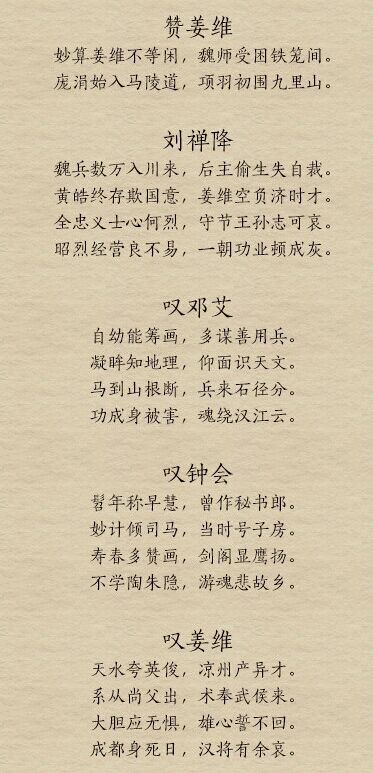 赞姜维
妙算姜维不等闲，魏师受困铁笼间。
庞涓始入马陵道，项羽初围九里山。
刘禅降
魏兵数万入川来，后主偷生失自裁。
黄皓终存欺国意，姜维空负济时才。
全忠义士心何烈，守节王孙志可哀。
昭烈经营良不易，一朝功业顿成灰。
叹邓艾
自幼能筹画，多谋善用兵。
凝眸知地理，仰面识天文。
马到山根断，兵来石径分。
功成身被害，魂绕汉江云。
叹钟会
髫年称早慧，曾作秘书郎。
妙计倾司马，当时号子房。
寿春多赞画，剑阁显鹰扬。
不学陶朱隐，游魂悲故乡。
叹姜维
天水夸英俊，凉州产异才。
系从尚父出，术奉武侯来。
大胆应无惧，雄心誓不回。
成都身死日，汉将有余哀。